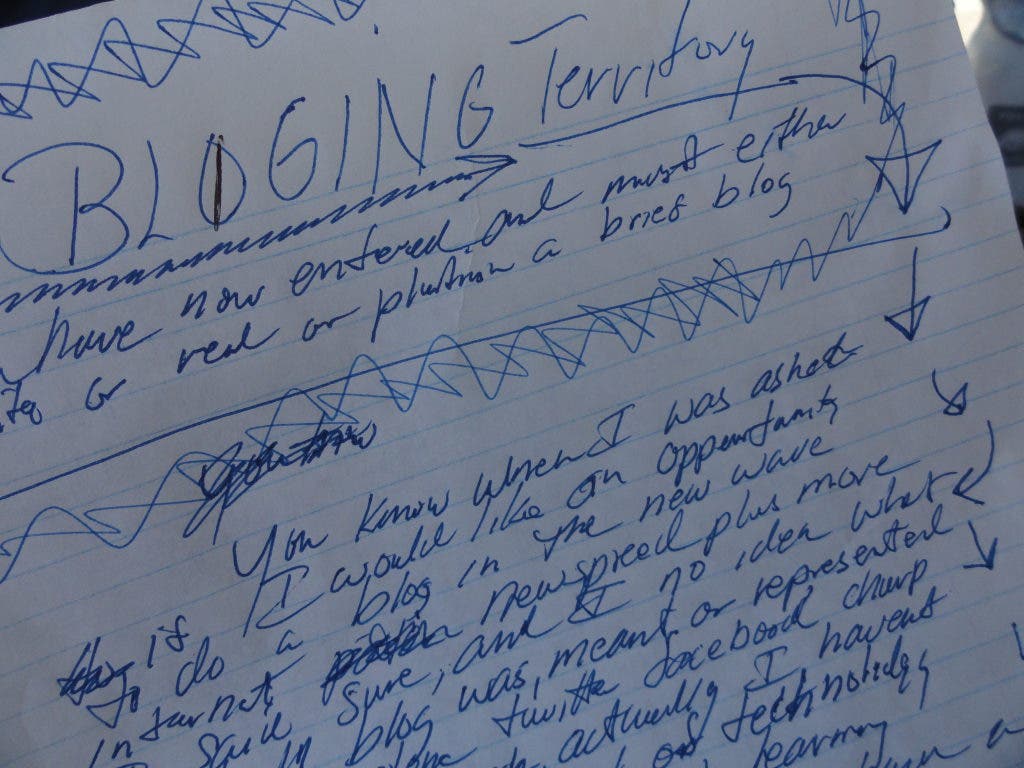 BLOGING Territory
have now entered and must either
or read or plutnow a brief blog
You know when I was asked
if I would like an oppeurtunity
to do a blog in the new wave
internet newspreed plus more
I said sure, and I no idea what
blog was, meant or represented
twitte facebood churp
actually I havent
of technology
learning